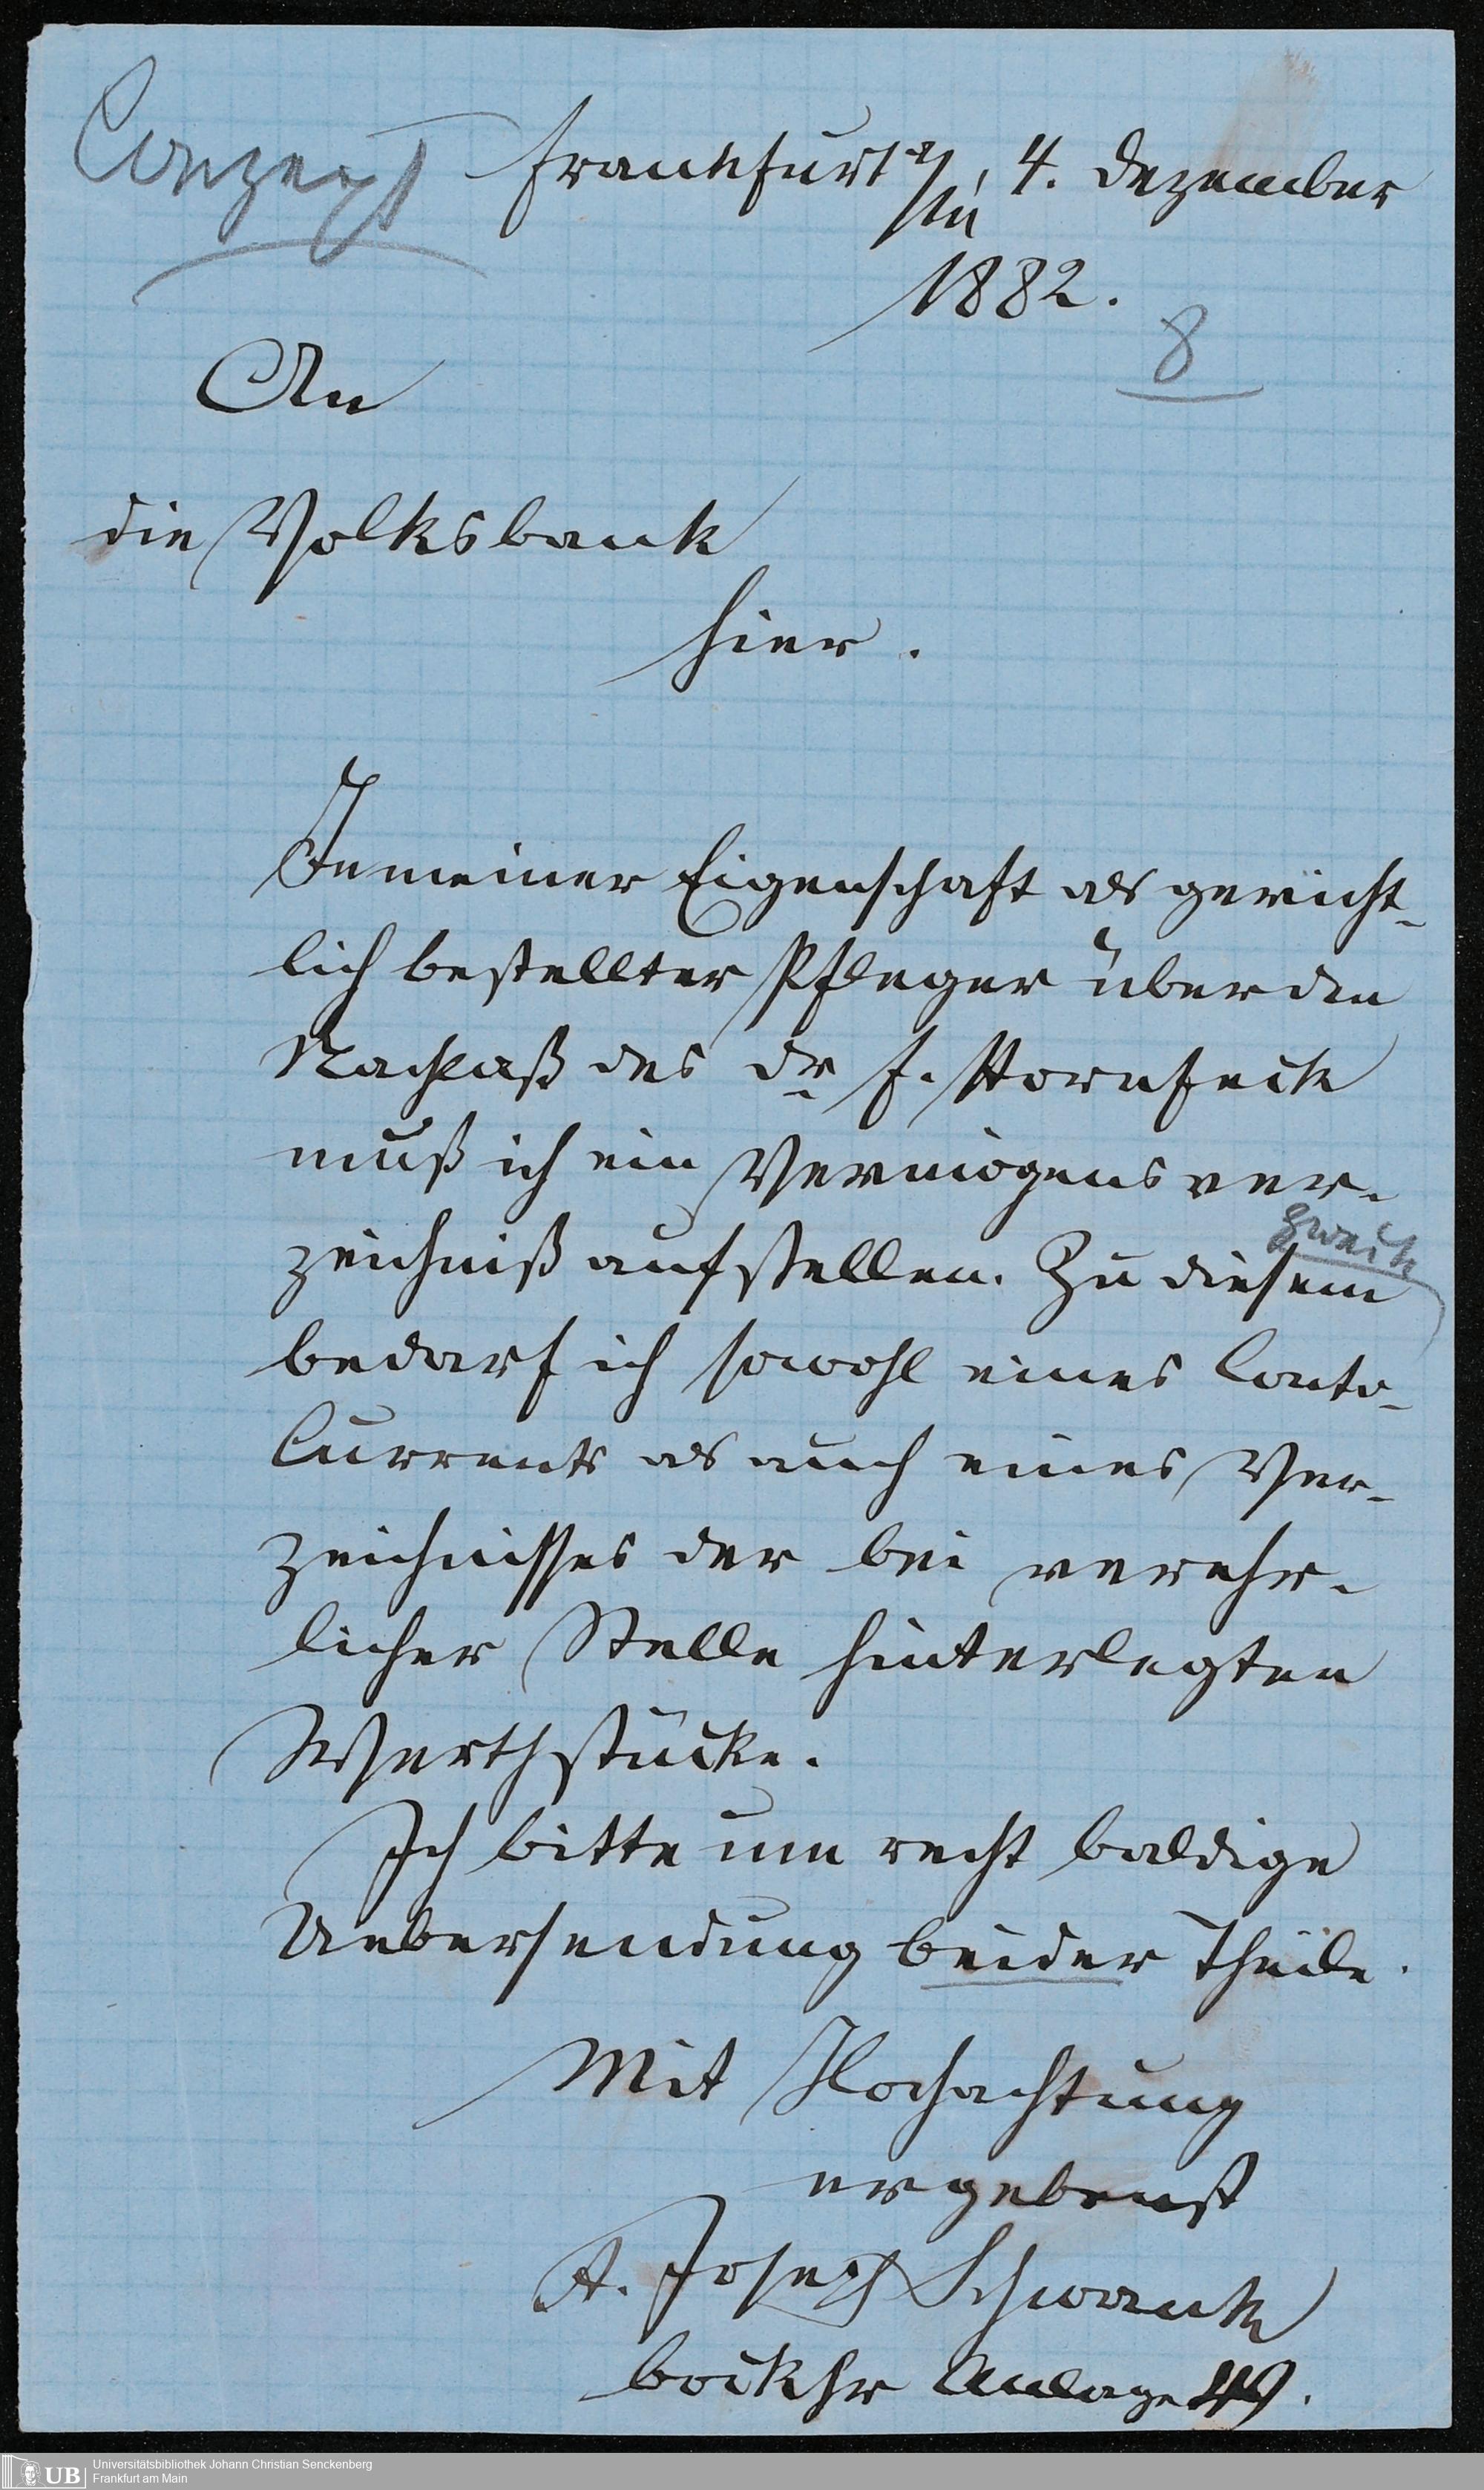 Conzept
Frankfurt a/M, 4. Dezember
1882.
8
An
die Volksbank
hier.
In meiner Eigenschaft als gericht-
lich bestellter Pfleger über den
Nachlaß des Dr F. Hornfeck
muß ich ein Vermögensver-
zeichniß aufstellen. Zu diesem
zweck
bedarf ich sowohl eines Conto-
Currents als auch eines Ver-
zeichnisses der bei verehr-
licher Stelle hinterlegten
Werthstücke.
Ich bitte um recht baldige
Uebersendung beider Theile.
Mit Hochachtung
ergebenst
A. Joseph Schwank
bockhr Anlage 49.
UB
Universitätsbibliothek Johann Christian Senckenberg
Frankfurt am Main